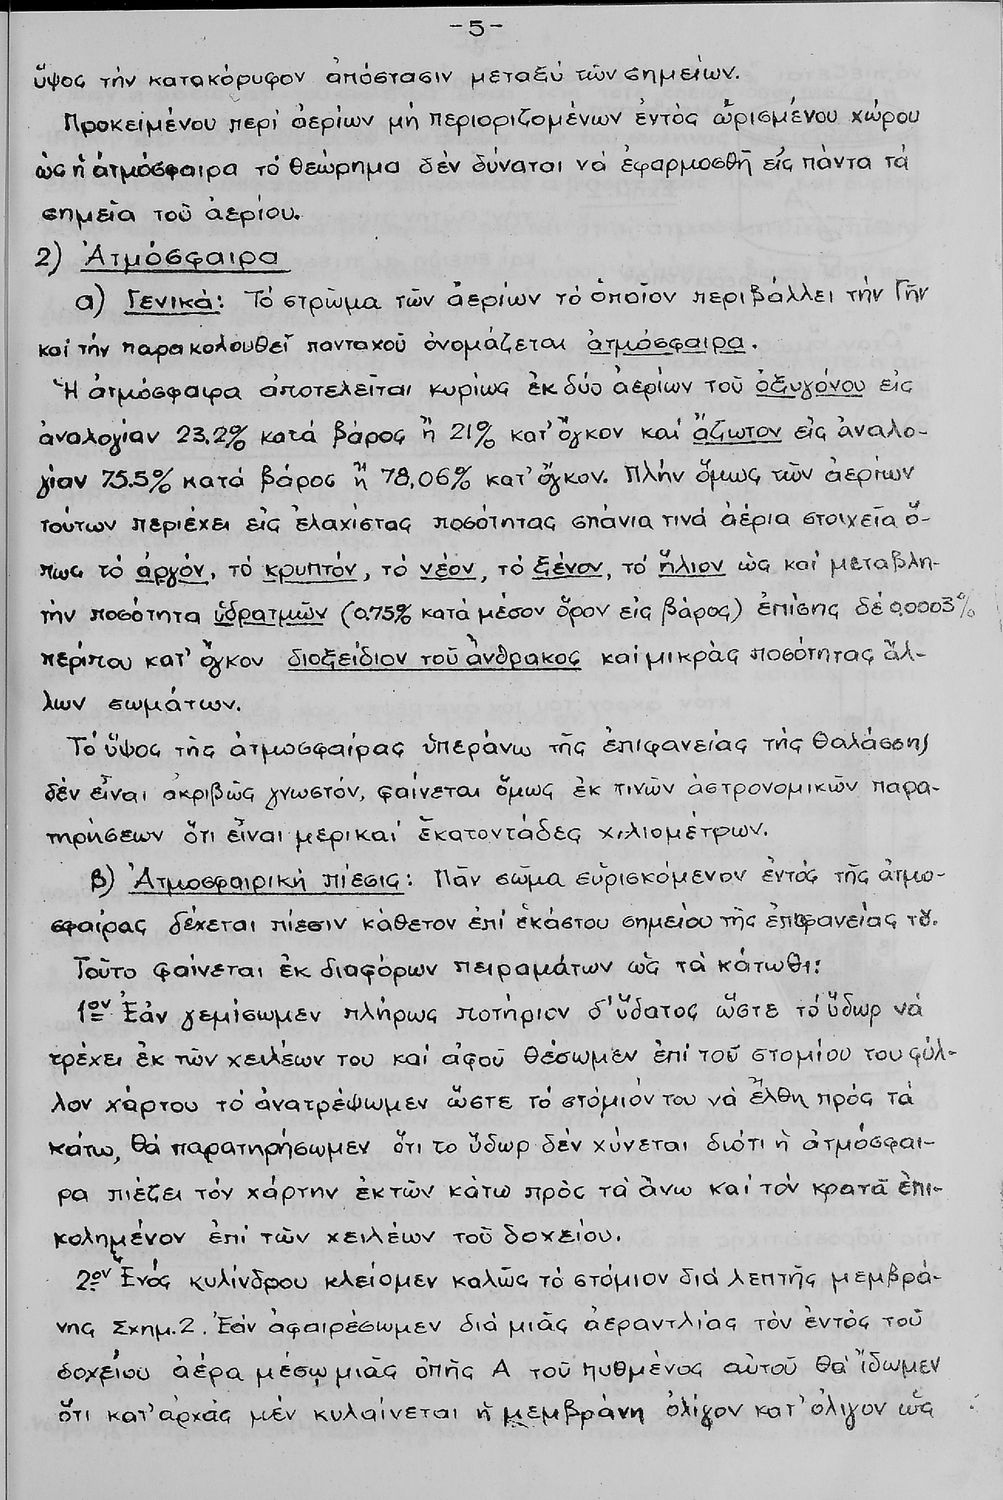 -5-
ὕψος τήν κατακόρυφον ἀπόστασιν μεταξύ τῶν σημείων.
Προκειμένου περί ἀερίων μή περιοριζομένων ἐντός ὡρισμένου χώρου
ὡς ἡ ἀτμόσφαιρα τό θεώρημα δέν δύναται νά ἐφαρμοσθῆ εἰς πάντα τά
σημεῖα τοῦ ἀερίου.
2) Ἀτμόσφαιρα
α) Γενικά: Τό στρῶμα τῶν ἀερίων τό ὁποῖον περιβάλλει τήν Γῆν
καί τήν παρακολουθεῖ πανταχοῦ ὀνομάζεται ἀτμόσφαιρα.
Ἡ ἀτμόσφαιρα ἀποτελεῖται κυρίως ἐκ δύο ἀερίων τοῦ ὀξυγόνου εἰς
ἀναλογίαν 23,2% κατά βάρος ἤ 21% κατ' ὄγκον καί ἄζωτον εἰς ἀναλο-
γίαν 75.5% κατά βάρος ἤ 78,06% κατ' ὄγκον. Πλήν ὅμως τῶν ἀερίων
τούτων περιέχει εἰς ἐλαχίστας ποσότητας σπάνια τινά ἀέρια στοιχεῖα ὅ-
πως τό ἀργόν, τό κρυπτόν, τό νέον, τό ξένον, τό ἥλιον ὡς καί μεταβλη-
τήν ποσότητα ὑδρατμῶν (0.75% κατά μέσον ὅρον εἰς βάρος) ἐπίσης δέ 0,0003%
περίπου κατ' ὄγκον διοξείδιον τοῦ ἄνθρακος καί μικράς ποσότητας ἄλ-
λων σωμάτων.
Τό ὕψος τῆς ἀτμοσφαίρας ὑπεράνω τῆς ἐπιφανείας τῆς θαλάσσης
δέν εἶναι ἀκριβῶς γνωστόν, φαίνεται ὅμως ἐκ τινῶν ἀστρονομικῶν παρα-
τηρήσεων ὅτι εἶναι μερικαί ἑκατοντάδες χιλιομέτρων.
β) Ἀτμοσφαιρική πίεσις: Πᾶν σῶμα εὑρισκόμενον ἐντός τῆς ἀτμο-
σφαίρας δέχεται πίεσιν κάθετον ἐπί ἑκάστου σημείου τῆς ἐπιφανείας του.
Τοῦτο φαίνεται ἐκ διαφόρων πειραμάτων ὡς τά κάτωθι:
1ον Ἐάν γεμίσωμεν πλήρως ποτήριον δ' ὕδατος ὥστε τό ὕδωρ νά
τρέχει ἐκ τῶν χειλέων του καί ἀφοῦ θέσωμεν ἐπί τοῦ στομίου του φύλ-
λον χάρτου τό ἀνατρέψωμεν ὥστε τό στόμιόν του νά ἔλθη πρός τά
κάτω, θά παρατηρήσωμεν ὅτι το ὕδωρ δέν χύνεται διότι ἡ ἀτμόσφαι-
ρα πιέζει τόν χάρτην ἐκ τῶν κάτω πρός τά ἄνω καί τόν κρατᾶ ἐπι-
κολημένον ἐπί τῶν χειλέων τοῦ δοχείου.
2ον Ἑνός κυλίνδρου κλείομεν καλῶς τό στόμιον διά λεπτῆς μεμβρά-
νης Σχημ.2. Ἐάν ἀφαιρέσωμεν διά μιᾶς ἀεραντλίας τόν ἐντός τοῦ
δοχείου ἀέρα μέσῳ μιᾶς ὀπῆς Α τοῦ πυθμένος αὐτοῦ θά ἴδωμεν
ὅτι κατ' ἀρχάς μέν κυλαίνεται ἡ μεμβράνη ὀλίγον κατ' ὀλιγον ὡς